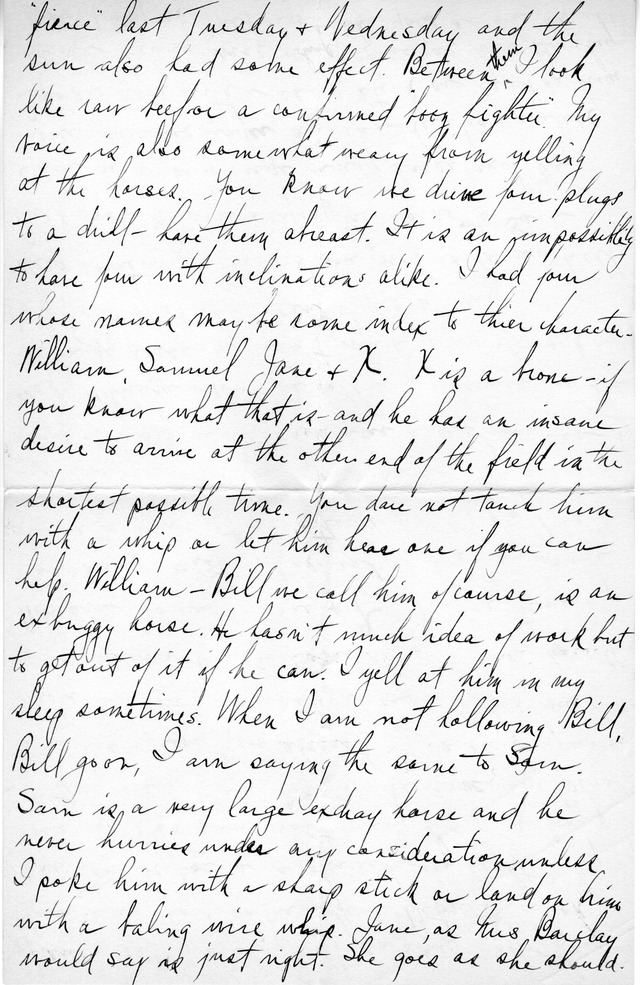 "fierce" last Tuesday & Wednesday and the
sun also had some effect. Between them I look
like raw beef or a confirmed "booz fighter". My
voice is also somewhat weary from yelling
at the horses. You know we drive four plugs
to a drill – have them abreast. It is an impossibility
to have four with inclinations alike. I had four
whose names may be some index to thier character –
William, Samuel Jane & X. X is a bronc – if
you know what that is – and he has an insane
desire to arrive at the other end of the field in the
shortest possible time. You dare not touch him
with a whip or let him hear one if you can
help. William – Bill we call him of course, is an
ex buggy horse. He hasn't much idea of work but
to get out of it if he can. I yell at him in my
sleep sometimes. When I am not hollowing Bill,
Bill go on, I am saying the same to Sam.
Sam is a very large exdray horse and he
never hurries under any consideration unless
I poke him with a sharp stick or land on him
with a baling wire whip. Jane, as Mrs Barclay
would say is just right. She goes as she should.